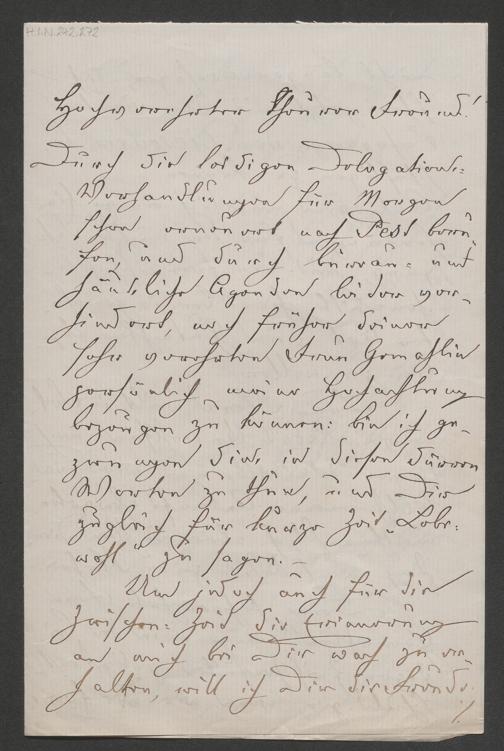 H.I.N. 242.272
Hochverehrter theurer Freund!
Durch die leidigen Delegations=
Verhandlungen für Morgen
schon erneuert nach Pest beru
fen, und durch büreau= und
häusliche Agenden leider ver-
hindert, noch früher deiner
sehr verehrten Frau Gemahlin
persönlich meine Hochachtung
bezeugen zu können: bin ich ge-
zwungen dies in diesen dürren
Worten zu thun, und Dir
zugleich für kurze Zeit „Lebe=
wohl“ zu sagen. –
Um jedoch auch für die
Zwischen=Zeit die Erinnerung
an mich bei Dir wach zu er
halten, will ich Dir die Freude